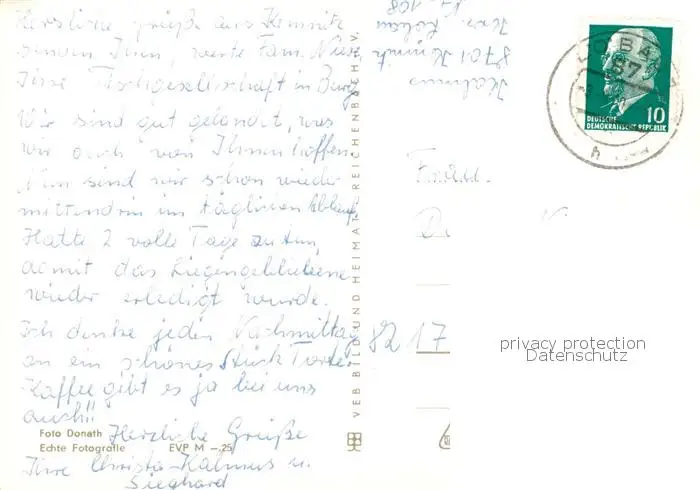 Herzliche Grüße aus Kemnitz
senden Ihnen, werte Fam.
Ihre Tischgesellschaft in Burg
Wir sind gut gelandet, was
wir auch von Ihnen hoffen.
Nun sind wir schon wieder
mittendrin im täglichen Ablauf.
Hatte 2 volle Tage zu tun,
damit das Liegengebliebene
wieder erledigt wurde.
Ich denke jeden Nachmittag
an ein schönes Stück Torte.
Kaffee gibt es ja bei uns
auch!!
Herzliche Grüße
Ihre Christa Kalmus u.
Sieghard
Foto Donath
Echte Fotografie EVP M –.25
VEB BILD UND HEIMAT REICHENBACH I. V.
Kalmus
8701
Krs. Löbau
Nr. 168
LÖBAU
87
h
10
DEUTSCHE
DEMOKRATISCHE REPUBLIK
Frau
8217
privacy protection
Datenschutz